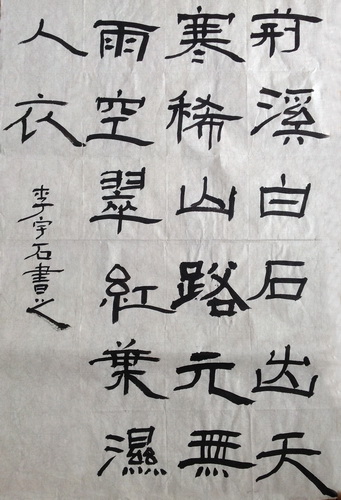 荊溪白石出天
寒稀山路元無
雨空翠紅葉濕
人衣
李宇石書之